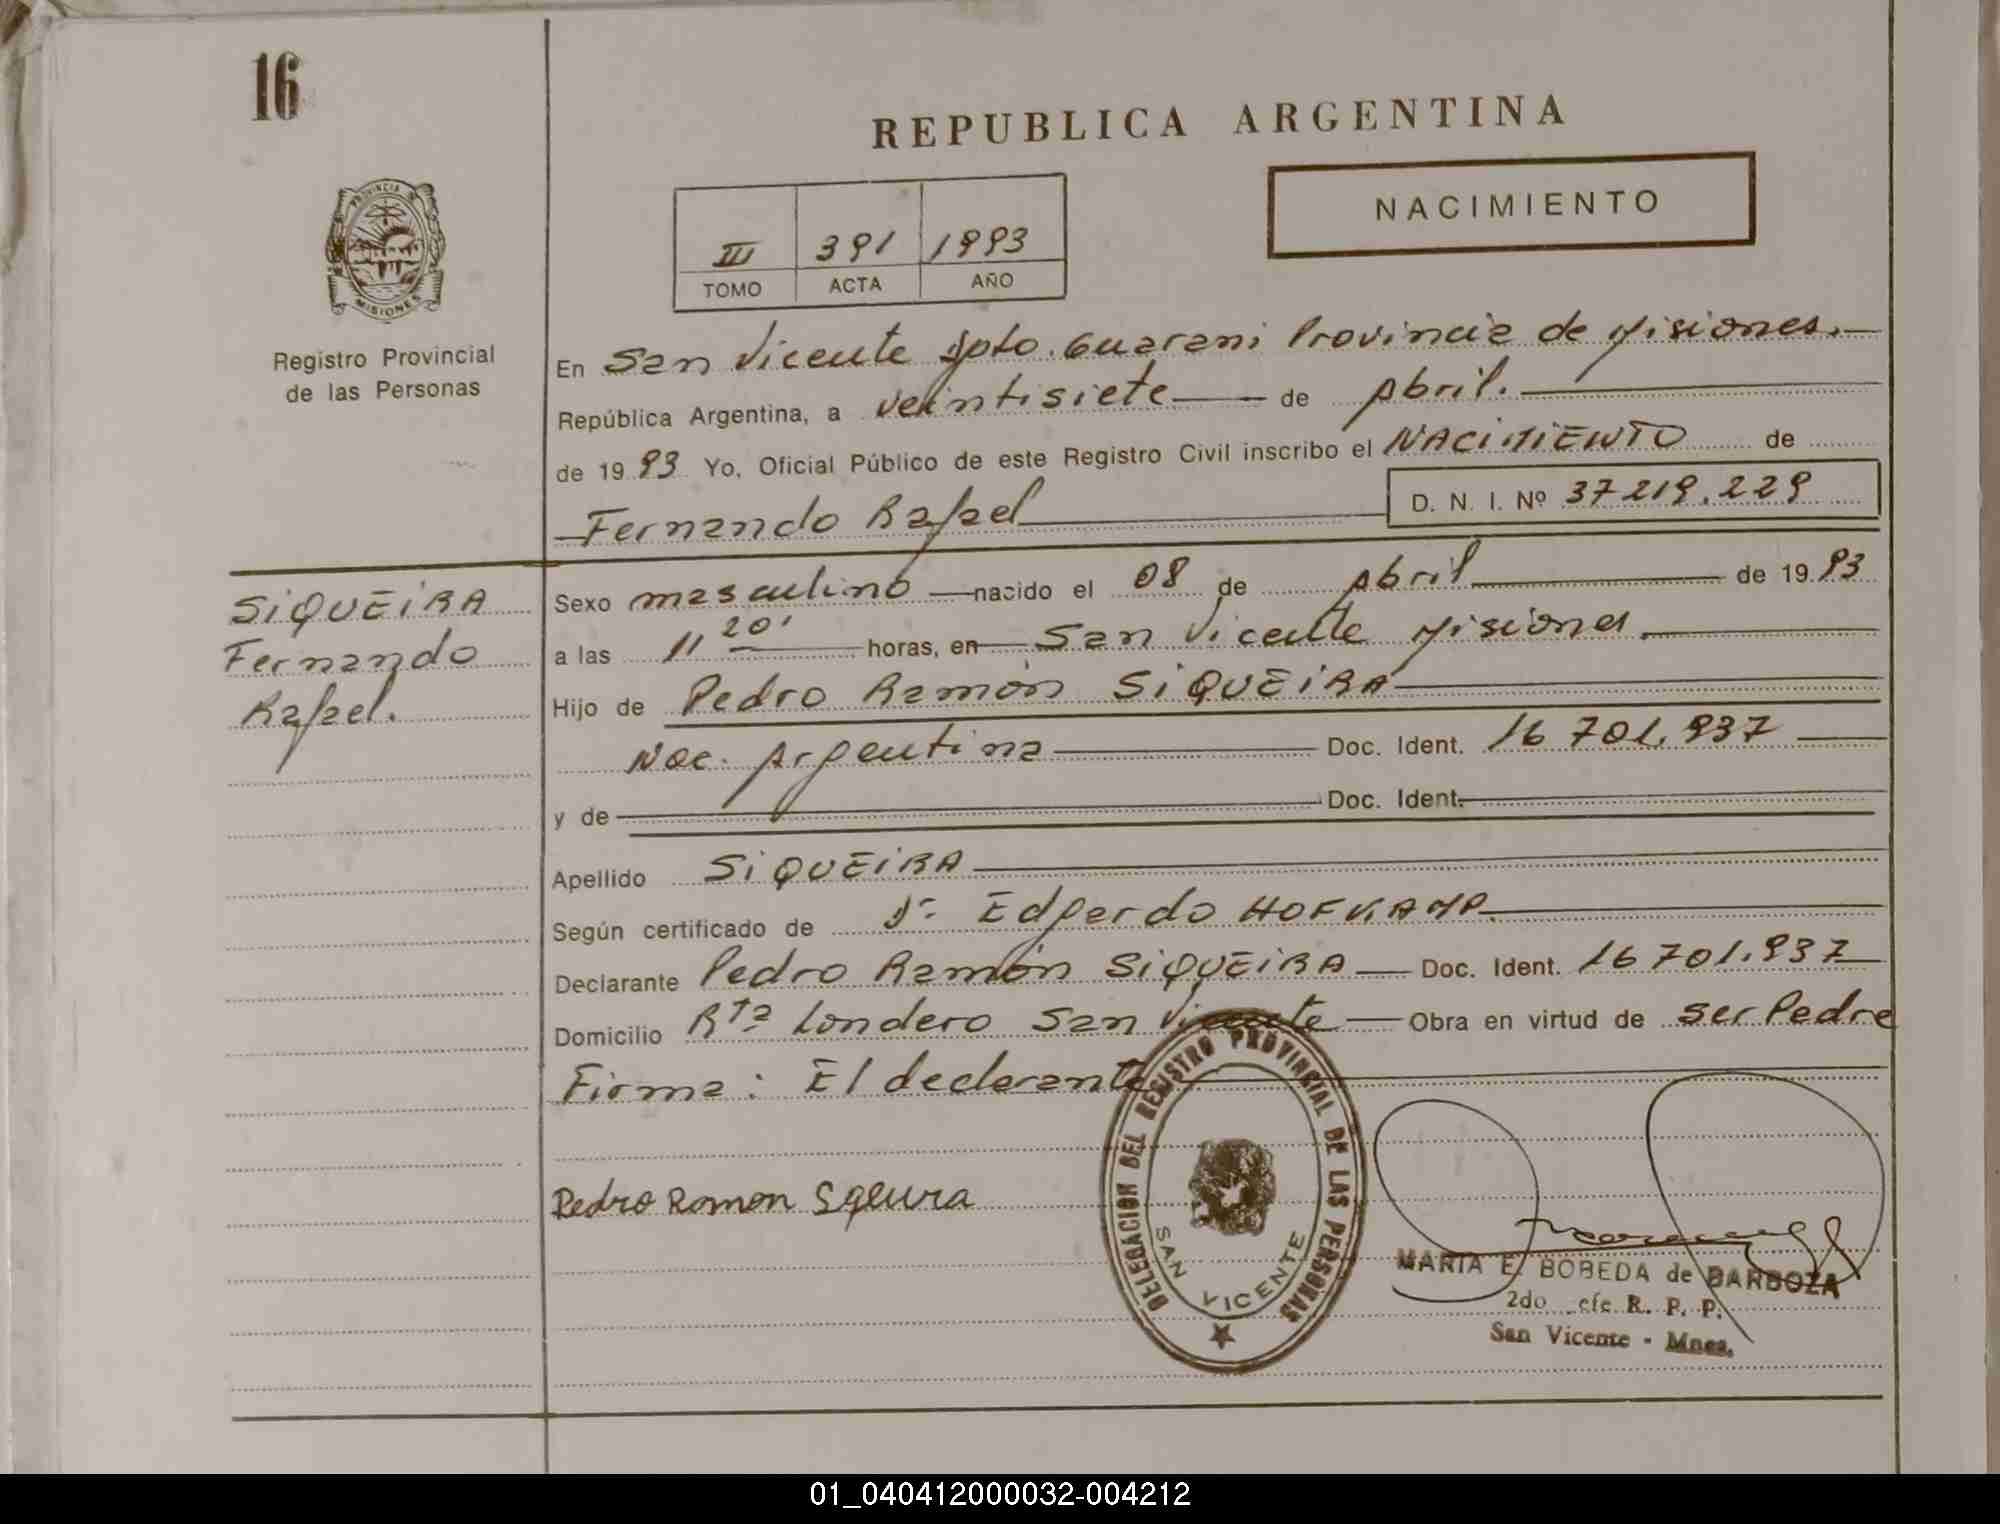 16
REPUBLICA ARGENTINA
NACIMIENTO
III 391 1993
TOMO ACTA AÑO
PROVINCIA DE
MISIONES
Registro Provincial
de las Personas
En San Vicente Dpto. Guarani Provincia de Misiones.
República Argentina, a veintisiete de Abril.
de 1993 Yo, Oficial Público de este Registro Civil inscribo el NACIMIENTO de
Fernando Rafael D. N. I. Nº 37219.229
SIQUEIRA
Fernando
Rafael.
Sexo masculino nacido el 08 de Abril de 1993
a las 11 20' horas, en San Vicente Misiones.
Hijo de Pedro Ramón SIQUEIRA
Nac. Argentina Doc. Ident. 16 701.937
y de Doc. Ident.
Apellido SIQUEIRA
Según certificado de Dr. Edgardo HOFKAMP.
Declarante Pedro Ramón SIQUEIRA Doc. Ident. 16 701.937
Domicilio Rta Londero San Vicente Obra en virtud de ser Padre
Firma: El declarante
DELEGACION DEL REGISTRO PROVINCIAL DE LAS PERSONAS
SAN VICENTE
Pedro Ramon Sqeura
MARIA E. BOBEDA de BARBOZA
2do efe R. P. P.
San Vicente - Mnes.
01_040412000032-004212